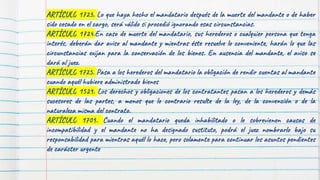 ARTÍCULO 1723. Lo que haya hecho el mandatario después de la muerte del mandante o de haber
sido cesado en el cargo, será válido si procedió ignorando esas circunstancias.
ARTÍCULO 1724. En caso de muerte del mandatario, sus herederos o cualquier persona que tenga
interés, deberán dar aviso al mandante y mientras éste resuelve lo conveniente, harán lo que las
circunstancias exijan para la conservación de los bienes. En ausencia del mandante, el aviso se
dará al juez.
ARTÍCULO 1725. Pasa a los herederos del mandatario la obligación de rendir cuentas al mandante
cuando aquél hubiere administrado bienes
ARTÍCULO 1521. Los derechos y obligaciones de los contratantes pasan a los herederos y demás
sucesores de las partes, a menos que lo contrario resulte de la ley, de la convención o de la
naturaleza misma del contrato.
ARTÍCULO 1701. Cuando el mandatario queda inhabilitado o le sobrevienen causas de
incompatibilidad y el mandante no ha designado sustituto, podrá el juez nombrarlo bajo su
responsabilidad para mientras aquél lo hace, pero solamente para continuar los asuntos pendientes
de carácter urgente